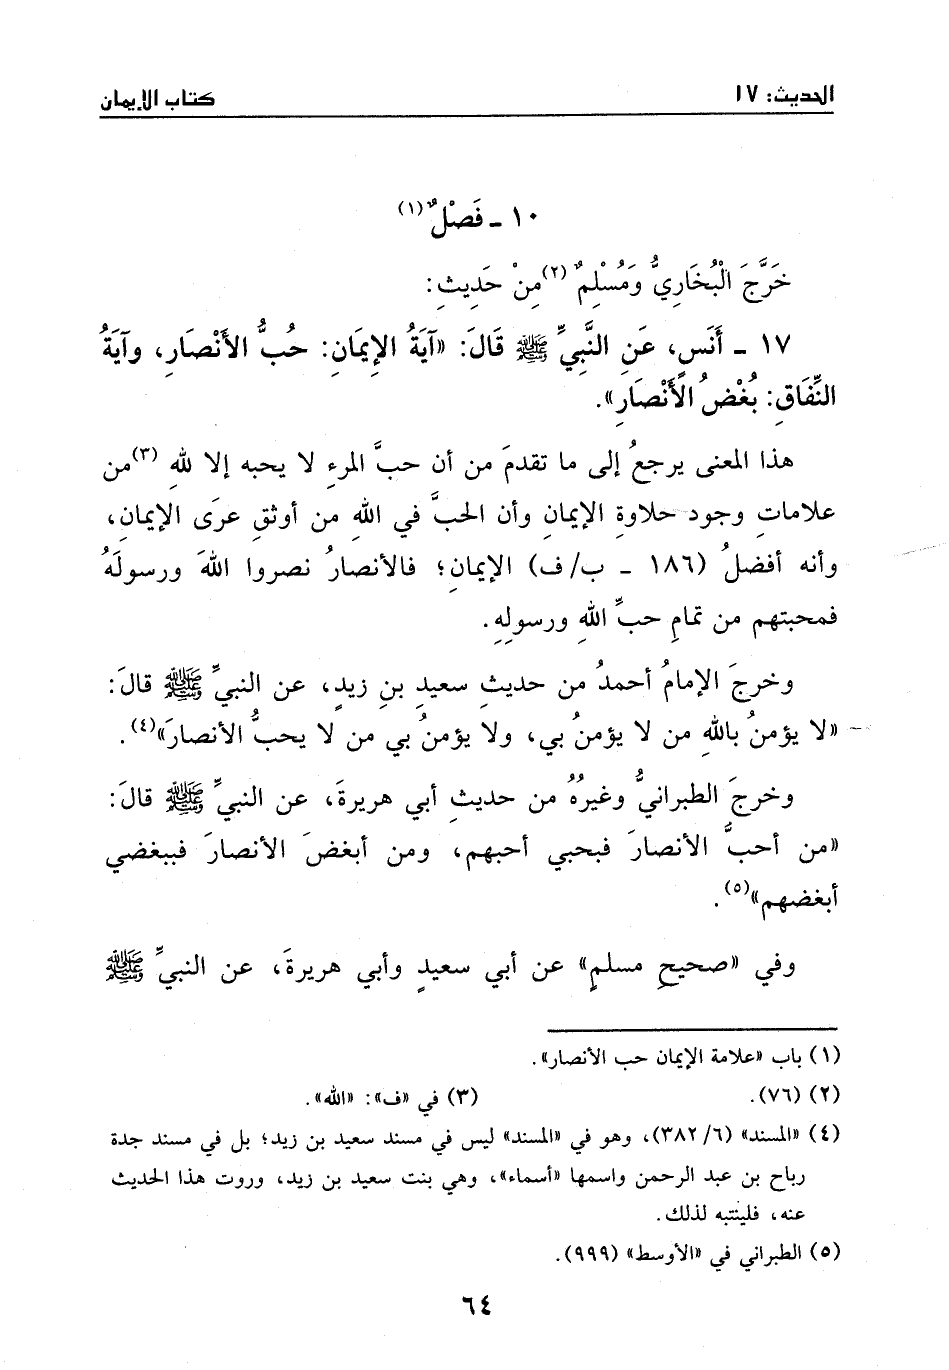 الحديث: ١٧ كتاب الإيمان
١٠ - فَصْلٌ(١)
خَرَّجَ الْبُخَارِيُّ وَمُسْلِمٌ(٢) مِنْ حَدِيثِ:
١٧ - أَنَسٍ، عَنِ النَّبِيِّ ﷺ قَالَ: «آيَةُ الإِيمَانِ: حُبُّ الأَنْصَارِ، وآيَةُ
النِّفَاقِ: بُغْضُ الأَنْصَارِ».
هذا المعنى يرجعُ إلى ما تقدمَ من أن حبَّ المرءِ لا يحبه إلا للهِ(٣) من
علاماتِ وجود حلاوةِ الإيمانِ وأن الحبَّ في اللهِ من أوثقِ عرَى الإيمانِ،
وأنه أفضلُ (١٨٦ - ب/ف) الإيمانِ؛ فالأنصارُ نصروا اللهَ ورسولَهُ
فمحبتهم من تمامِ حبِّ اللهِ ورسولِهِ.
وخرجَ الإمامُ أحمدُ من حديثِ سعيدِ بنِ زيدٍ، عن النبيِّ ﷺ قالَ:
«لا يؤمنُ باللهِ من لا يؤمنُ بي، ولا يؤمنُ بي من لا يحبُّ الأنصارَ»(٤).
وخرجَ الطبرانيُّ وغيرُهُ من حديثِ أبي هريرةَ، عن النبيِّ ﷺ قالَ:
«من أحبَّ الأنصارَ فبحبي أحبهم، ومن أبغضَ الأنصارَ فببغضي
أبغضهم»(٥).
وفي «صحيحِ مسلمٍ» عن أبي سعيدٍ وأبي هريرةَ، عن النبيِّ ﷺ
(١) باب «علامة الإيمان حب الأنصار».
(٢) (٧٦). (٣) في «ف»: «الله».
(٤) «المسند» (٦/ ٣٨٢)، وهو في «المسند» ليس في مسند سعيد بن زيد؛ بل في مسند جدة
رباح بن عبد الرحمن واسمها «أسماء»، وهي بنت سعيد بن زيد، وروت هذا الحديث
عنه، فلينتبه لذلك.
(٥) الطبراني في «الأوسط» (٩٩٩).
٦٤